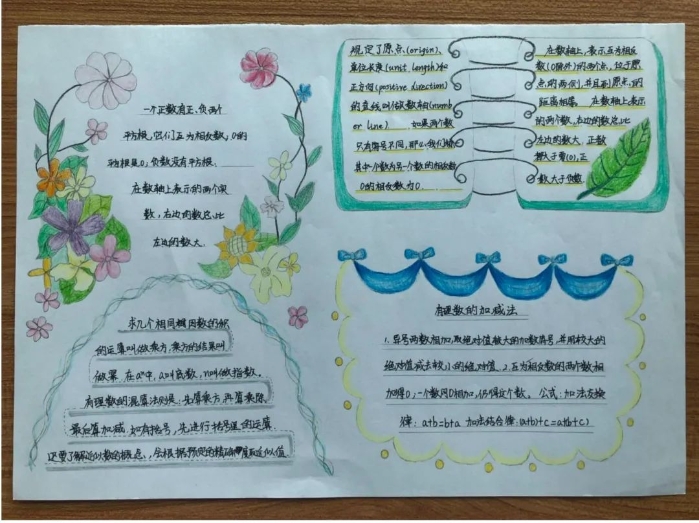 一个正数有正、负两个
平方根，它们互为相反数；0的
平方根是0；负数没有平方根。
在数轴上表示的两个实
数，右边的数总比
左边的数大
规定了原点(origin)、
单位长度(unit length)和
正方向(positive direction)
的直线叫做数轴(numb
er line) 如果两个数
只有符号不同，那么我们称
其中一个数为另一个数的相反数
0的相反数为0
在数轴上，表示互为相反
数(0除外)的两个点，位于原
点的两侧，并且到原点的
距离相等。 在数轴上表示
的两个数，右边的数总比
左边的数大 正数
都大于零(0)，正
数大于负数
求几个相同因数的积
的运算叫做乘方，乘方的结果叫
做幂 在aⁿ中，a叫底数，n叫做指数。
有理数的混算法则是：先算乘方，再算乘除，
最后算加减 如有括号，先进行括号里的运算
还要了解近似数的概念，会根据预定的精确度取近似值
有理数的加减法
1、异号两数相加，取绝对值较大的加数符号，并用较大的
绝对值减去较小的绝对值 2、互为相反数的两个数相
加得0；一个数同0相加，仍得这个数。 公式：加法交换
律：a+b=b+a 加法结合律：(a+b)+c=a+(b+c)